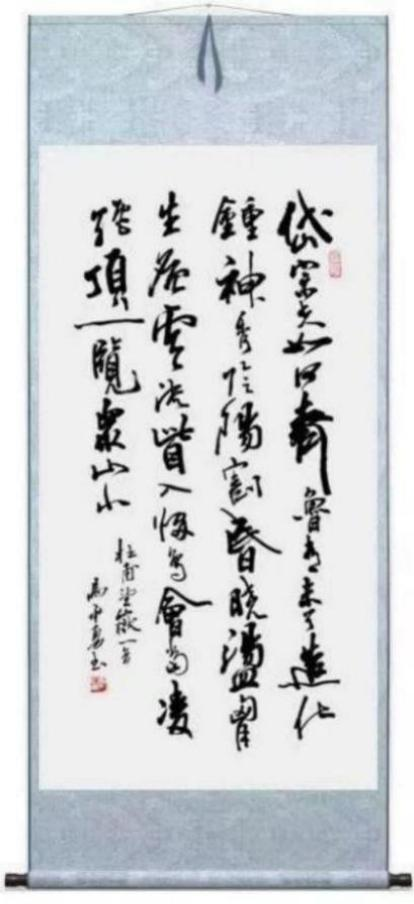 岱宗夫如何齊魯青未了造化
鍾神秀陰陽割昏曉盪胸
生層雲決眥入歸鳥會當凌
絕頂一覽眾山小
杜甫望嶽一首